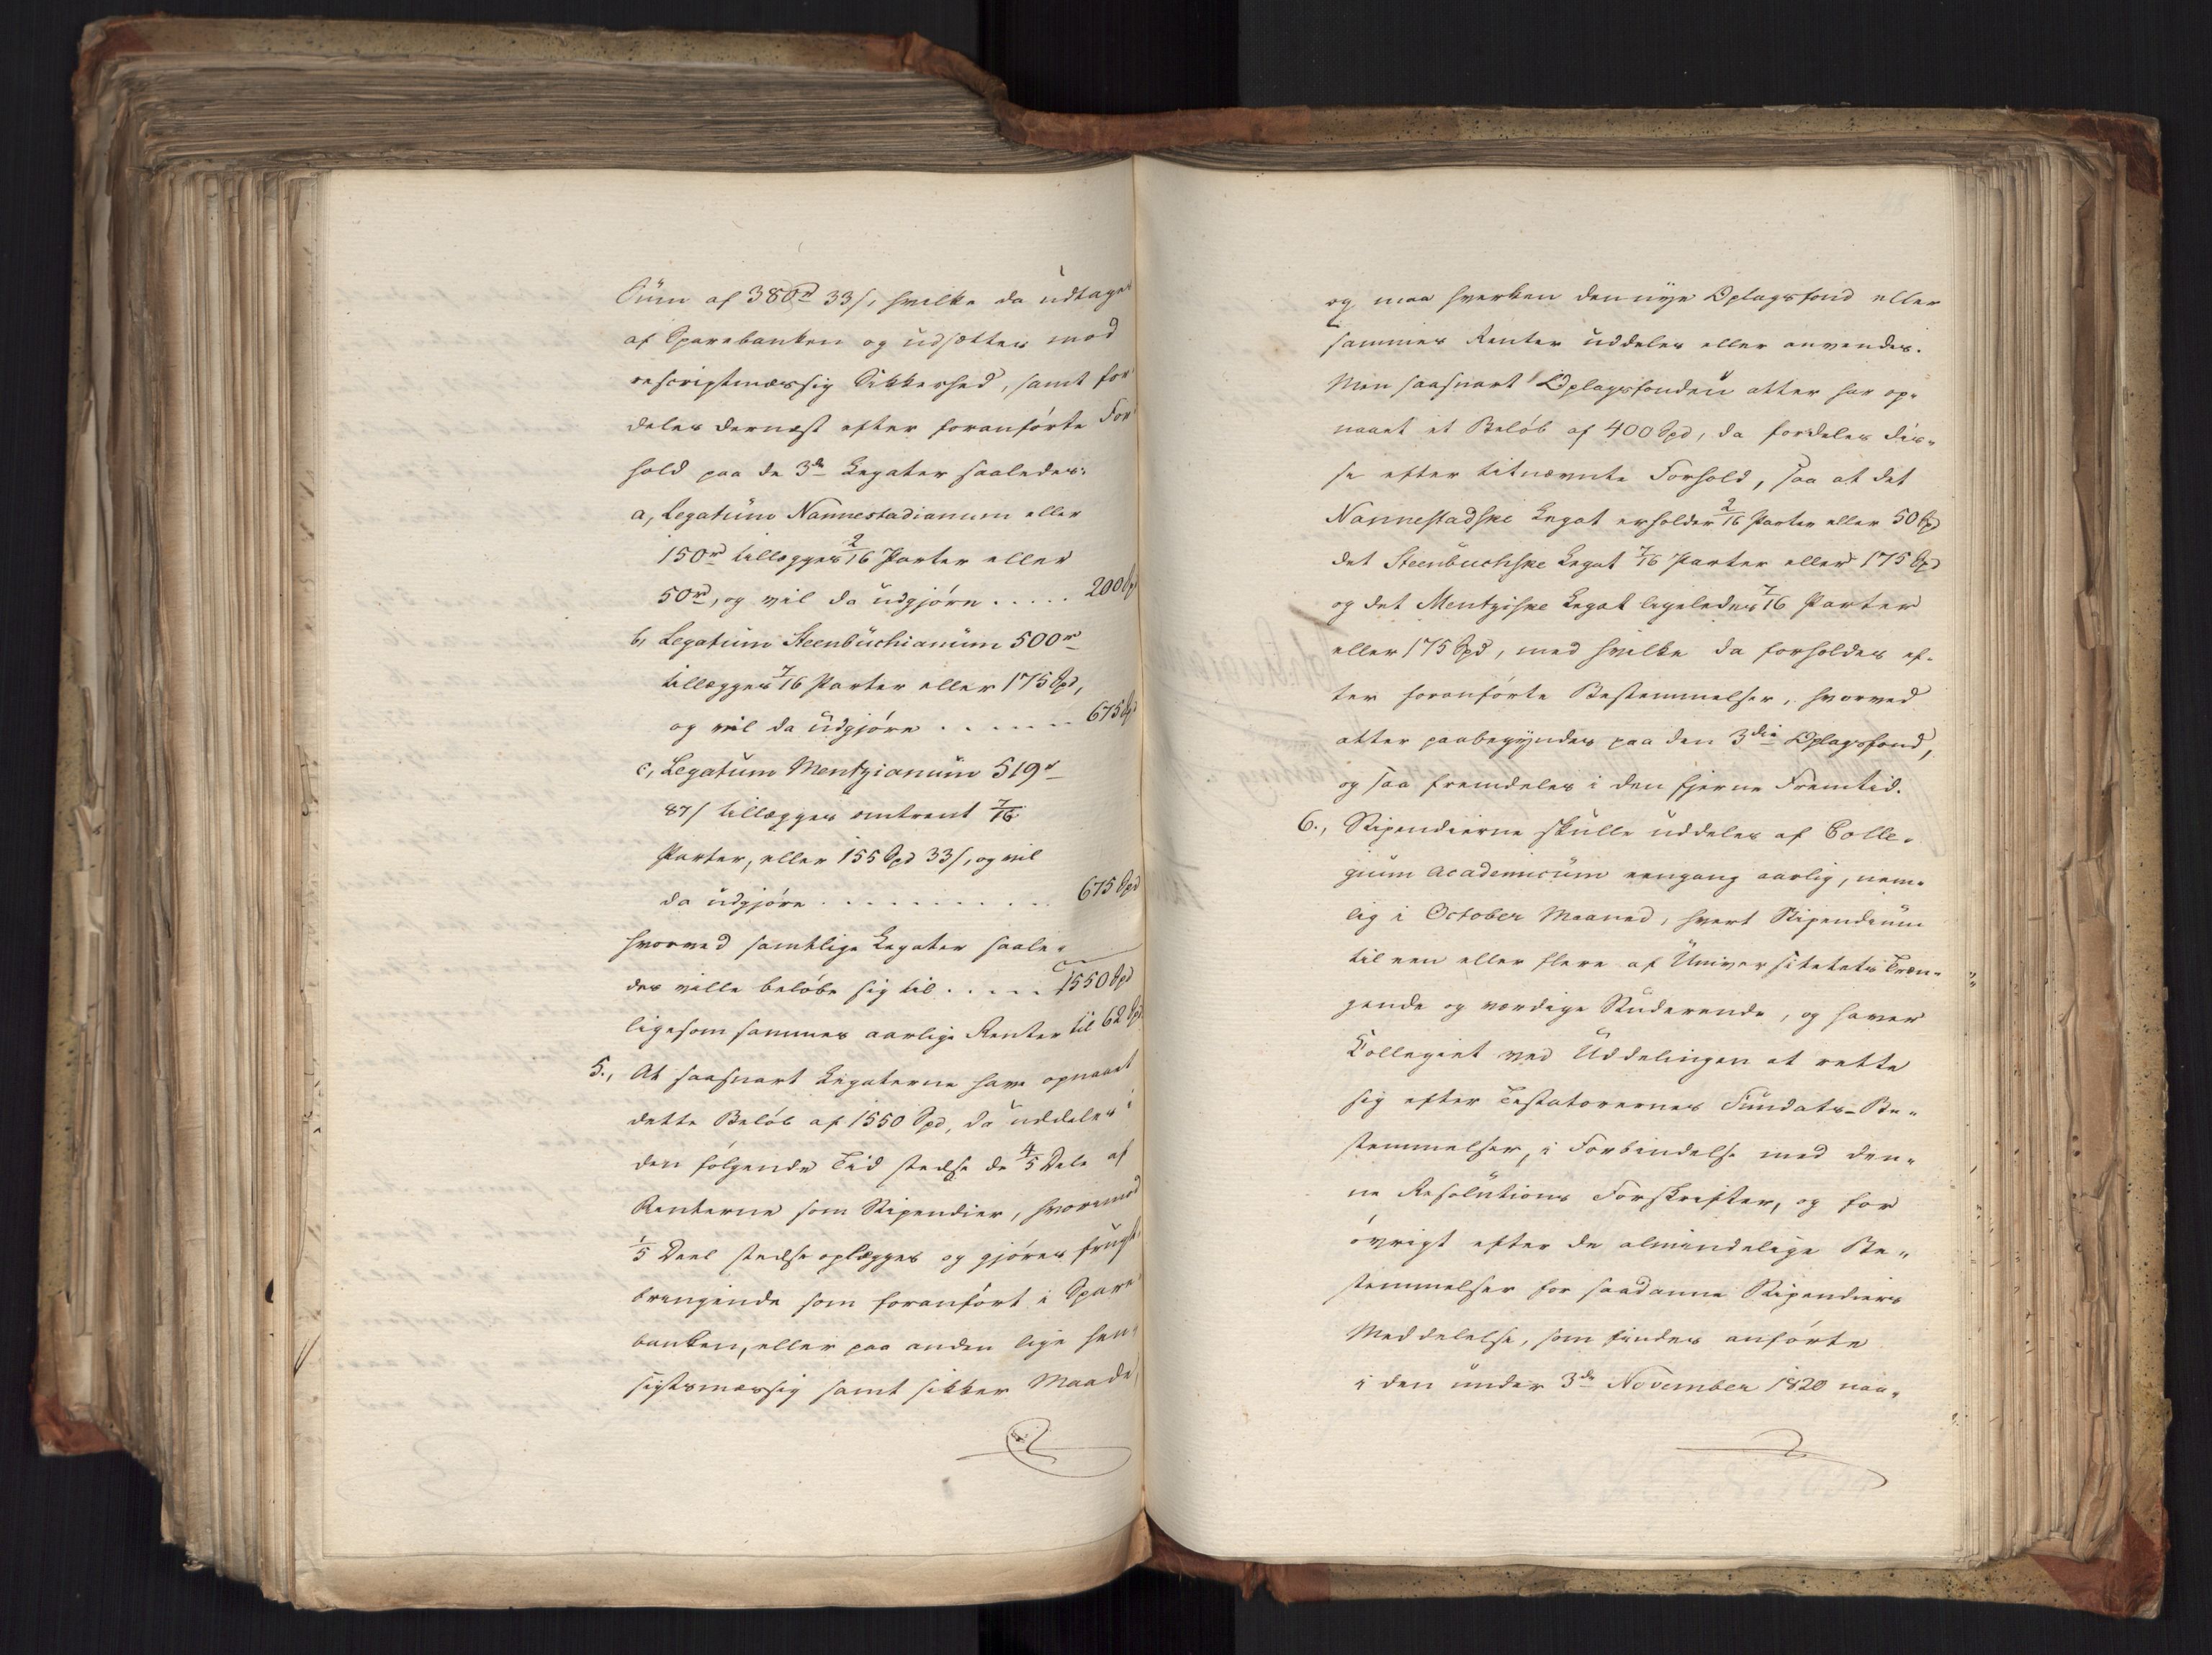 Sum af 380rd 33/, hvilke da udtages
af Sparebanken og udsættes mod
rescriptmæssig Sikkerhed, samt for-
deles dernæst efter foranførte For-
hold paa de 3de Legater saaledes:
a, Legatum Nannestadianum eller
150rd tillægges 2/16 Parter eller
50rd, og vil da udgjøre ..... 200 Spd
b, Legatum Steenbuchianum 500rd
tillægges 7/16 Parter eller 175 Spd,
og vil da udgjøre ...... 675 Spd
c, Legatum Mentzianum 519rd
87/ tillægges omtrent 7/16
Parter, eller 155 Spd 33/, og vil
da udgjøre .......... 675 Spd
hvorved samtlige Legater saale-
des ville beløbe sig til ..... 1550 Spd
ligesom sammes aarlige Renter til 62 Spd
5., At saasnart Legaterne have opnaaet
dette Beløb af 1550 Spd, da uddeles i
den følgende Tid stedse de 4/5 Dele af
Renterne som Stipendier, hvorimod
1/5 Deel stedse oplægges og gjøres frugt-
bringende som foranført i Spare-
banken, eller paa anden lige hen-
sigtsmæssig samt sikker Maade,
og maa hverken den nye Oplagsfond eller
sammes Renter uddeles eller anvendes.
Men saasnart Oplagsfonden atter har op-
naaet et Beløb af 400 Spd, da fordeles dis-
se efter titnævnte Forhold, saa at det
Nannestadske Legat erholder 2/16 Parter eller 50 Spd
det Steenbuchske Legat 7/16 Parter eller 175 Spd
og det Mentziske Legat ligeledes 7/16 Parter
eller 175 Spd, med hvilke da forholdes ef-
ter foranførte Bestemmelser, hvorved
atter paabegyndes paa den 3die Oplagsfond,
og saa fremdeles i den fjerne Fremtid.
6., Stipendierne skulle uddeles af Colle-
gium academicum eengang aarlig, nem-
lig i October Maaned, hvert Stipendium
til een eller flere af Universitetets Træn-
gende og værdige Studerende, og haver
Collegiet ved Uddelingen at rette
sig efter Testatorernes Fundats-Be-
stemmelser, i Forbindelse med den-
ne Resolutions Forskrifter, og for
øvrigt efter de almindelige Be-
stemmelser for saadanne Stipendiers
Meddelelse, som findes anførte
i den under 3de November 1820 naa-